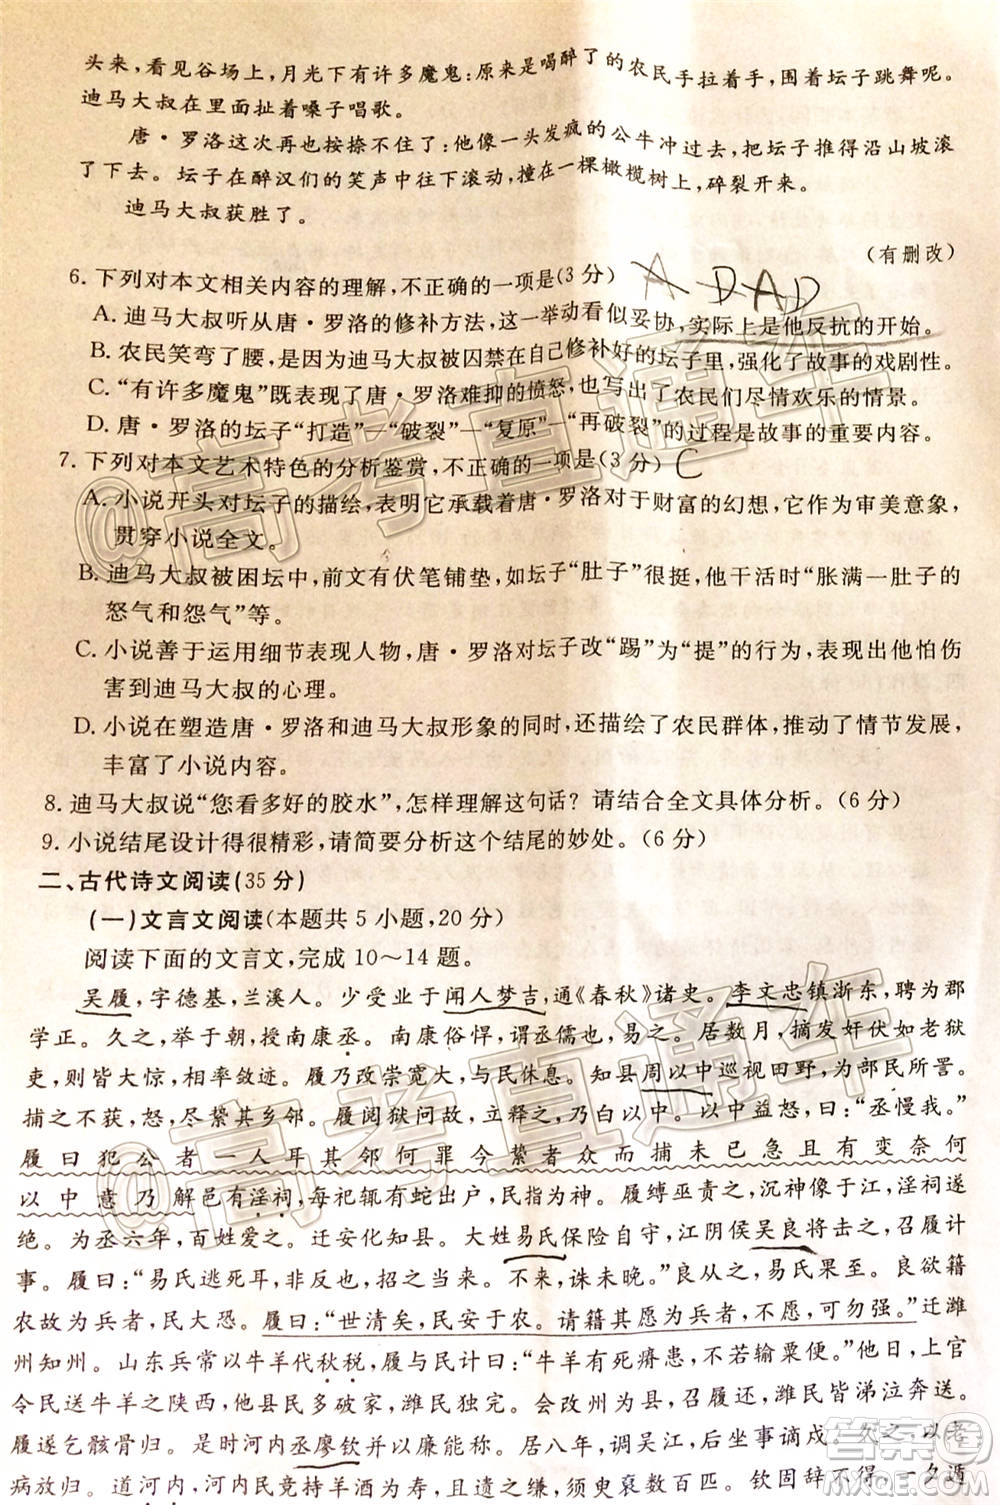 头来,看见谷场上,月光下有许多魔鬼:原来是喝醉了的农民手拉着手,围着坛子跳舞呢。
迪马大叔在里面扯着嗓子唱歌。
唐·罗洛这次再也按捺不住了:他像一头发疯的公牛冲过去,把坛子推得沿山坡滚
了下去。坛子在醉汉们的笑声中往下滚动,撞在一棵橄榄树上,碎裂开来。
迪马大叔获胜了。
(有删改)
6. 下列对本文相关内容的理解,不正确的一项是(3分) A DAD
A. 迪马大叔听从唐·罗洛的修补方法,这一举动看似妥协,实际上是他反抗的开始。
B. 农民笑弯了腰,是因为迪马大叔被囚禁在自己修补好的坛子里,强化了故事的戏剧性。
C. “有许多魔鬼”既表现了唐·罗洛难抑的愤怒,又写出了农民们尽情欢乐的情景。
D. 唐·罗洛的坛子“打造”—“破裂”—“复原”—“再破裂”的过程是故事的重要内容。
7. 下列对本文艺术特色的分析鉴赏,不正确的一项是(3分) C
A. 小说开头对坛子的描绘,表明它承载着唐·罗洛对于财富的幻想,它作为审美意象,
贯穿小说全文。
B. 迪马大叔被困坛中,前文有伏笔铺垫,如坛子“肚子”很挺,他干活时“胀满一肚子的
怒气和怨气”等。
C. 小说善于运用细节表现人物,唐·罗洛对坛子改“踢”为“提”的行为,表现出他怕伤
害到迪马大叔的心理。
D. 小说在塑造唐·罗洛和迪马大叔形象的同时,还描绘了农民群体,推动了情节发展,
丰富了小说内容。
8. 迪马大叔说“您看多好的胶水”,怎样理解这句话?请结合全文具体分析。(6分)
9. 小说结尾设计得很精彩,请简要分析这个结尾的妙处。(6分)
二、古代诗文阅读(35分)
(一)文言文阅读(本题共5小题,20分)
阅读下面的文言文,完成10~14题。
吴履,字德基,兰溪人。少受业于闻人梦吉,通《春秋》诸史。李文忠镇浙东,聘为郡
学正。久之,举于朝,授南康丞。南康俗悍,谓丞儒也,易之。居数月,摘发奸伏如老狱
吏,则皆大惊,相率敛迹。履乃改崇宽大,与民休息。知县周以中巡视田野,为部民所詈。
捕之不获,怒,尽絷其乡邻。履阅狱问故,立释之,乃白以中。以中益怒,曰:“丞慢我。”
履曰犯公者一人耳其邻何罪今絷者众而捕未已急且有变奈何
以中意乃解邑有淫祠,每祀辄有蛇出户,民指为神。履缚巫责之,沉神像于江,淫祠遂
绝。为丞六年,百姓爱之。迁安化知县。大姓易氏保险自守,江阴侯吴良将击之,召履计
事。履曰:“易氏逃死耳,非反也,招之当来。不来,诛未晚。”良从之,易氏果至。良欲籍
农故为兵者,民大恐。履曰:“世清矣,民安于农。请籍其愿为兵者,不愿,可勿强。”迁潍
州知州。山东兵常以牛羊代秋税,履与民计曰:“牛羊有死瘠患,不若输粟便。”他日,上官
令民送牛羊之陕西,他县民多破家,潍民独完。会改州为县,召履还,潍民皆涕泣奔送。
履遂乞骸骨归。是时河内丞廖钦并以廉能称。居八年,调吴江,后坐事谪戍。久之,以老
病放归。道河内,河内民竞持羊酒为寿,且遗之缣,须臾裒数百匹。钦固辞不得,一夕遁